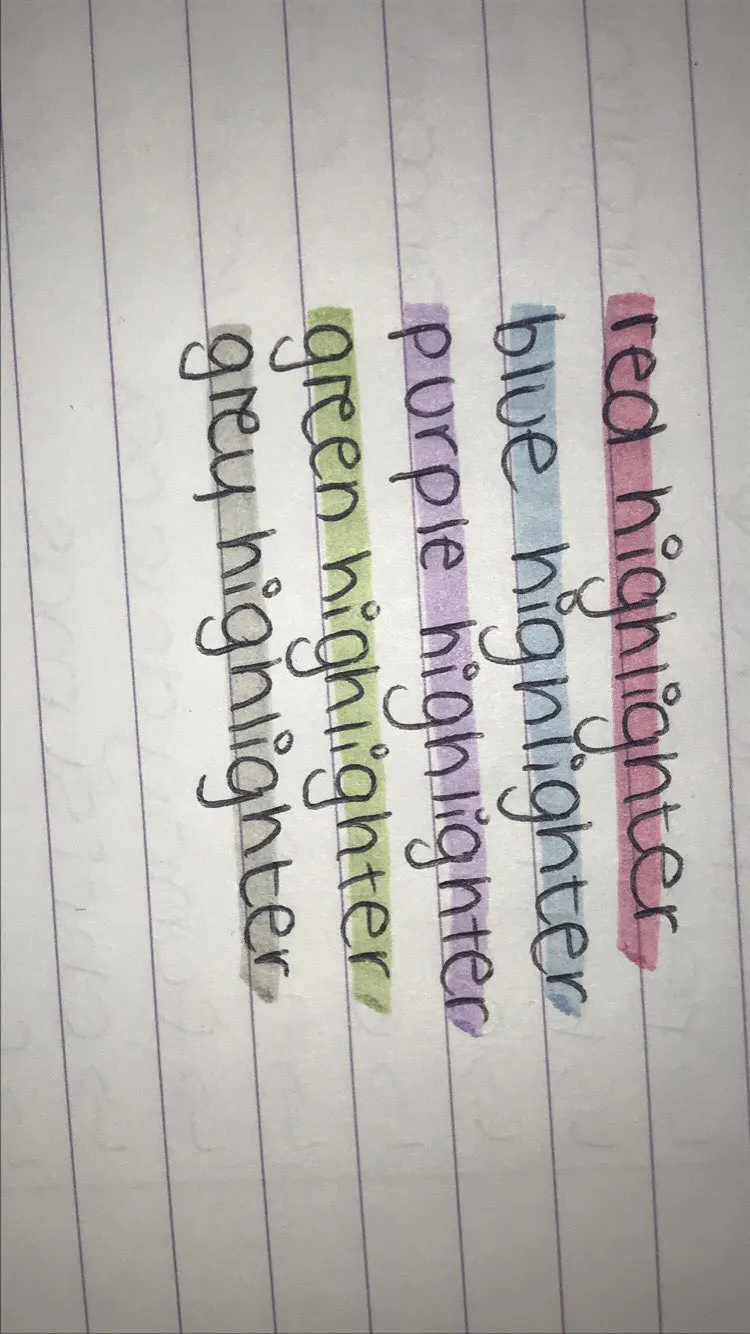 red highlighter
blue highlighter
purple highlighter
green highlighter
grey highlighter